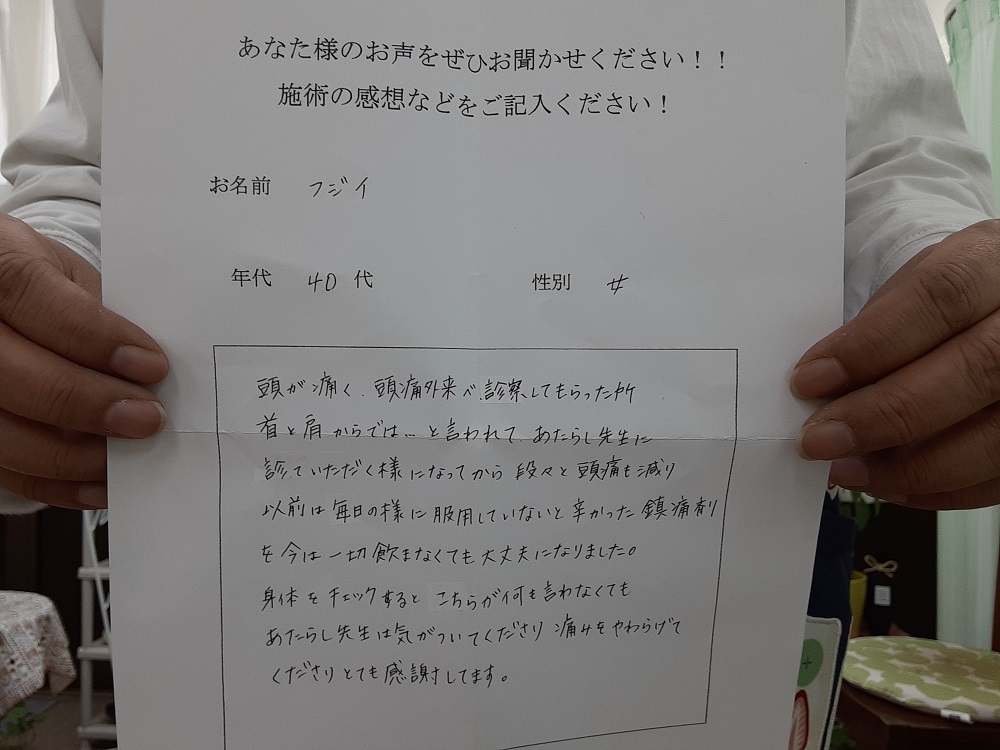 あなた様のお声をぜひお聞かせください！！
施術の感想などをご記入ください！
お名前 フジイ
年代 40 代 性別 女
頭が痛く、頭痛外来へ診察してもらった所
首と肩からでは…と言われて、あたらし先生に
診ていただく様になってから段々と頭痛も減り
以前は毎日の様に服用していないと辛かった鎮痛剤
を今は一切飲まなくても大丈夫になりました。
身体をチェックするとこちらが何も言わなくても
あたらし先生は気がついてくださり痛みをやわらげて
くださりとても感謝してます。